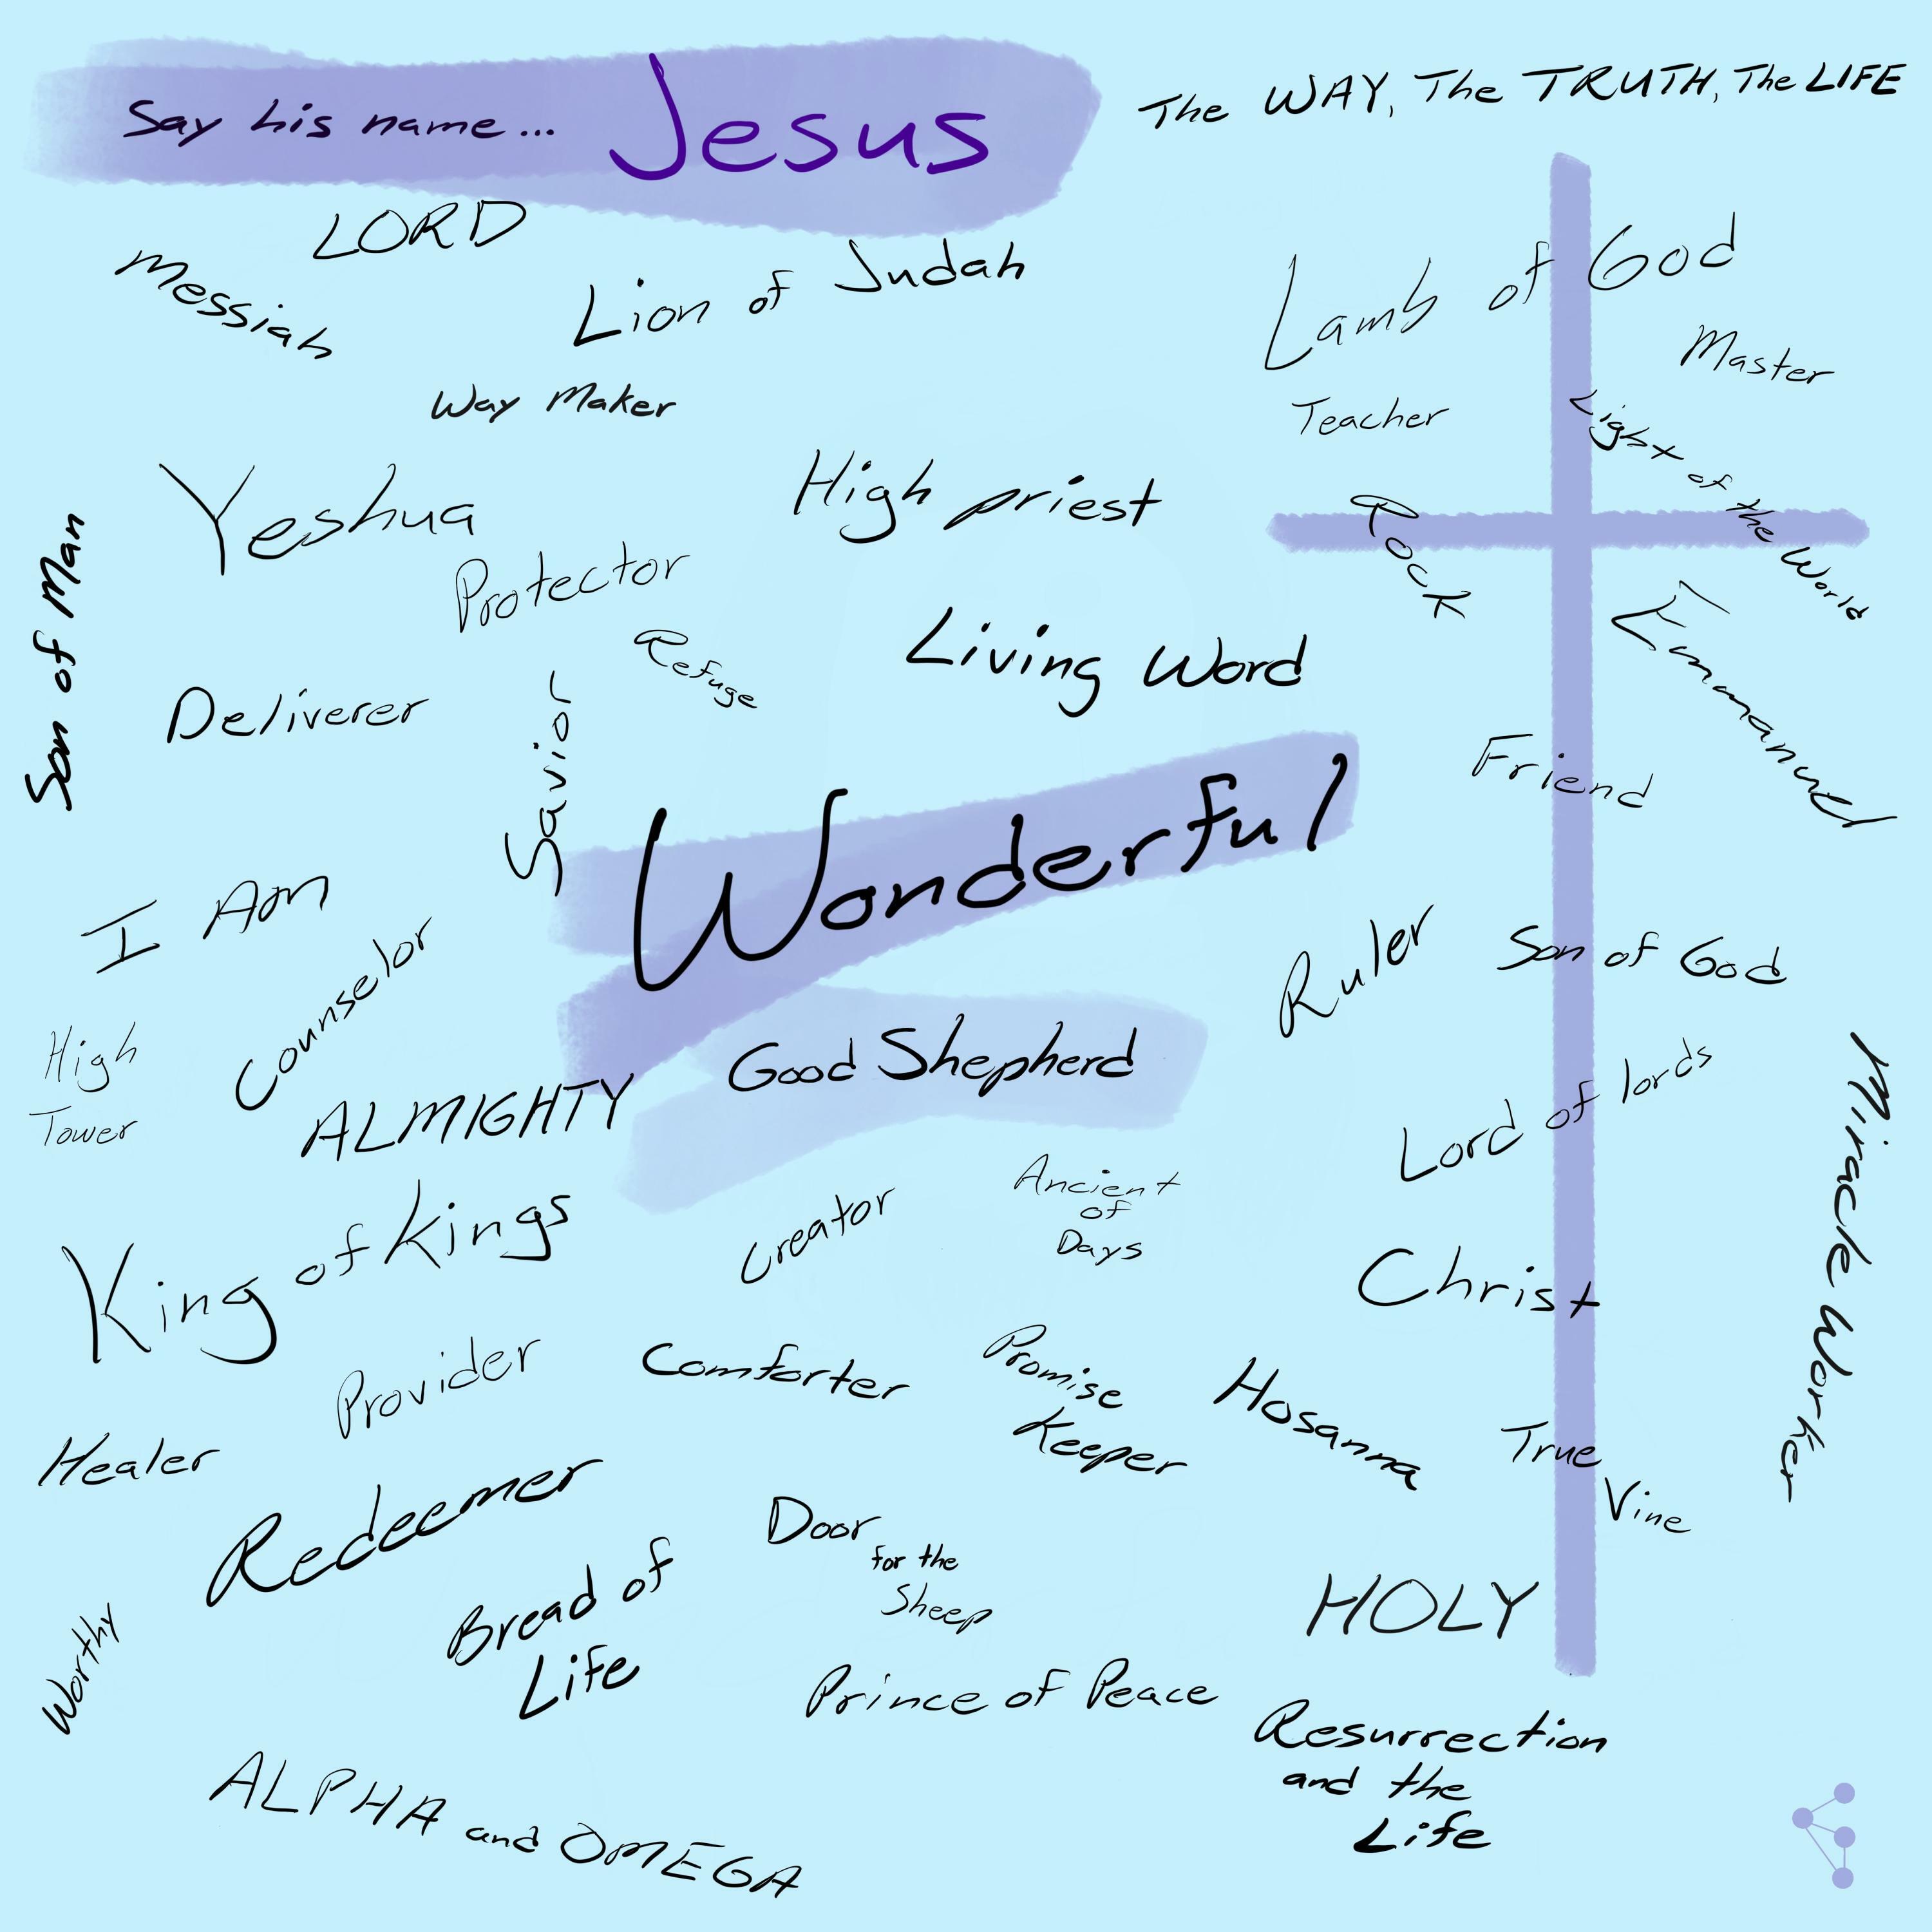 Say his name... Jesus
The WAY, The TRUTH, The LIFE
LORD
Messiah
Lion of Judah
Lamb of God
Master
Way Maker
Teacher
Light of the World
Yeshua
High priest
Rock
Son of Man
Protector
Refuge
Living Word
Emmanuel
Deliverer
Savior
Friend
Wonderful
I Am
Counselor
Ruler
Son of God
High
Tower
Good Shepherd
ALMIGHTY
Lord of lords
Miracle Worker
King of Kings
Creator
Ancient
of
Days
Christ
Provider
Comforter
Promise
Keeper
Hosanna
Healer
True
Vine
Redeemer
Door
for the
Sheep
Bread of
Life
HOLY
Worthy
Prince of Peace
Resurrection
and the
Life
ALPHA and OMEGA